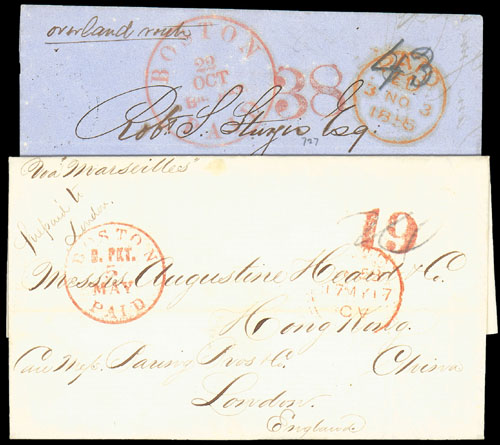 overland route
BOSTON
22
OCT
Br.
38
43
PAID
3 NO 3
Robt. S. Sturgis Esq.
727
Via Marseilles
Prepaid to
London.
BOSTON
B. PKT.
MAY
PAID
19
17 MY 17
Messrs. Augustine Heard & Co.
Hong Kong.
Care Messrs. Baring Bros & Co. China
London.
England